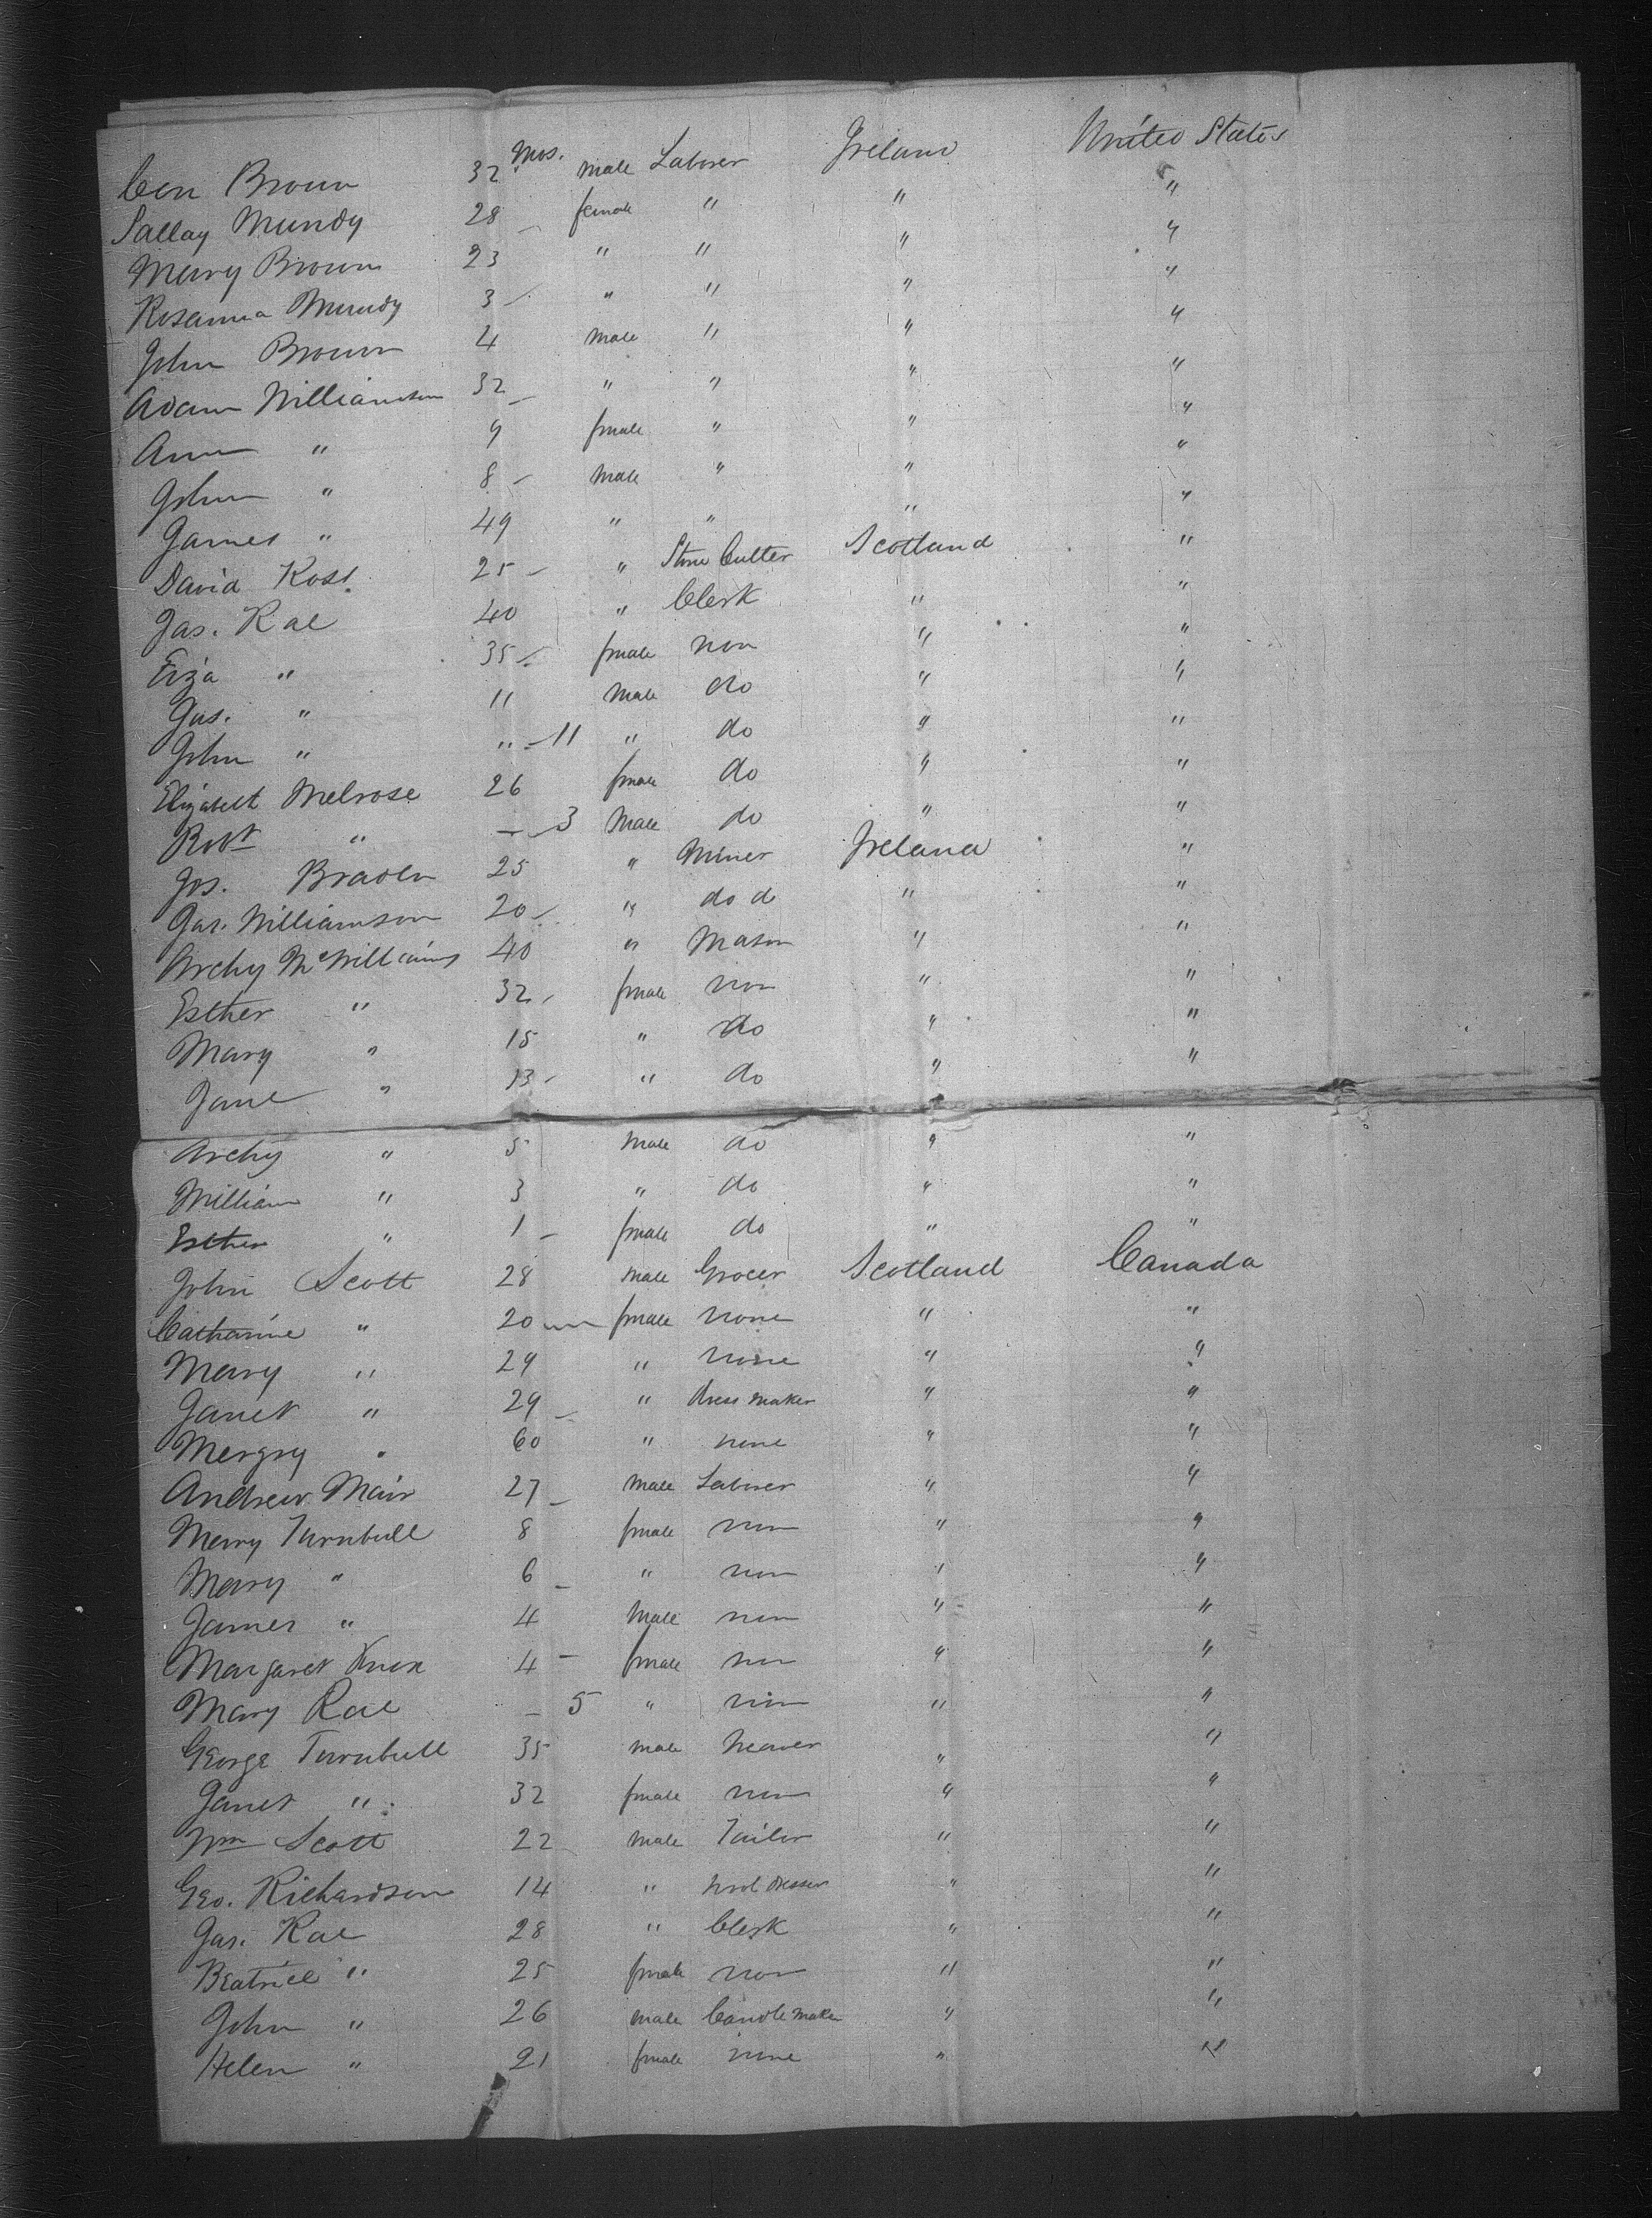 Con Brown 32 Mos. male Laborer Ireland United States
Sallay Mundy 28 female " " "
Mary Brown 23 " " " "
Rosanna Mundy 3 " " " "
John Brown 4 male " " "
Adam Williamson 32 " " " "
Ann " 9 fmale " " "
John " 8 male " " "
James " 49 " " " "
David Ross 25 " Stone Cutter Scotland "
Jas. Rae 40 " Clerk " "
Eiza " 35 fmale non " "
Jas. " 11 male do " "
John " " 11 " do " "
Elizabett Melrose 26 fmale do " "
Robt " — 3 Male do " "
Jos. Braden 25 " Miner Ireland "
Jas. Williamson 20 " do d " "
Archy McWilliams 40 " Mason " "
Esther " 32 fmale non " "
Mary " 15 " do " "
Jane " 13 " do " "
Archy " 5 Male do " "
William " 3 " do " "
Esther " 1 fmale do " "
John Scott 28 Male Grocer Scotland Canada
Catharine " 20 fmale none " "
Mary " 29 " none " "
Janet " 29 " dress maker " "
Mergry " 60 " none " "
Andrew Mair 27 Male Laborer " "
Merry Turnbull 8 fmale non " "
Mary " 6 " non " "
James " 4 Male non " "
Margaret Knox 4 fmale non " "
Mary Rae — 5 " non " "
George Turnbull 35 male Weaver " "
Janet " 32 fmale non " "
Wm Scott 22 male Tailor " "
Geo. Richardson 14 " Wool dresser " "
Jas. Rae 28 " Clerk " "
Beatrice " 25 fmale non " "
John " 26 male Candle Maker " "
Helen " 21 fmale none " "